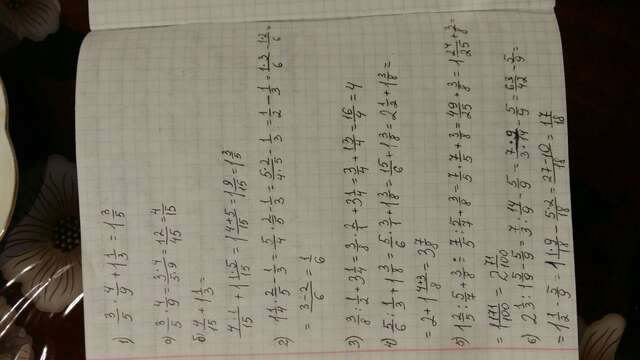 1) 3/5 · 4/9 + 1 1/3 = 1 3/5
а) 3/5 · 4/9 = 3·4/5·9 = 12/45 = 4/15
б) 4/15 + 1 1/3 =
4·1/15 + 1 1·5/15 = 1 4+5/15 = 1 9/15 = 1 3/5
2) 1 1/4 · 2/5 − 1/3 = 5/4 · 2/5 − 1/3 = 5·2/4·5 − 1/3 = 1/2 − 1/3 = 1·3/6 − 1·2/6 =
= 3−2/6 = 1/6
3) 3/8 : 1/2 + 3 1/4 = 3/8 · 2/1 + 3 1/4 = 3/4 + 13/4 = 16/4 = 4
4) 5/6 : 1/3 + 1 3/8 = 5/6 · 3/1 + 1 3/8 = 15/6 + 1 3/8 = 2 1/2 + 1 3/8 =
= 2 + 1 4+3/8 = 3 7/8
5) 1 2/5 : 5/7 + 3/8 = 7/5 : 5/7 + 3/8 = 7/5 · 7/5 + 3/8 = 49/25 + 3/8 = 1 24/25 + 3/8 =
= 1 171/100 = 2 71/100
6) 2 1/3 : 1 5/9 − 5/9 = 7/3 : 14/9 − 5/9 = 7·9/3·14 − 5/9 = 63/42 − 5/9 =
= 1 1/2 − 5/9 = 1 1·9/18 − 5·2/18 = 27−10/18 = 17/18